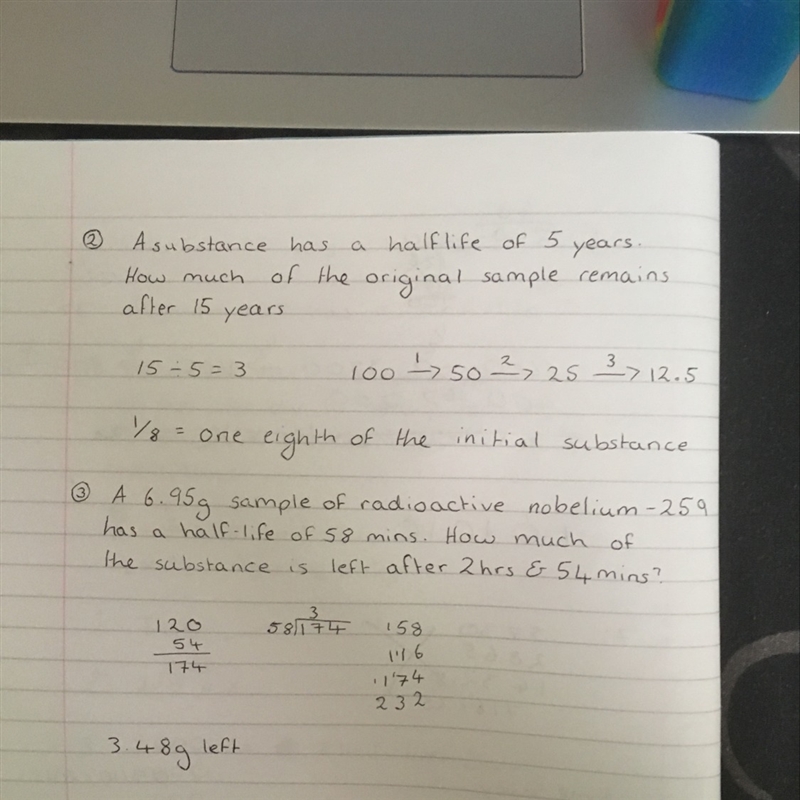 ② A substance has a halflife of 5 years.
How much of the original sample remains
after 15 years
15 ÷ 5 = 3
100 —1→ 50 —2→ 25 —3→ 12.5
1/8 = one eighth of the initial substance
③ A 6.95g sample of radioactive nobelium-259
has a half-life of 58 mins. How much of
the substance is left after 2hrs & 54 mins?
120
54
174
3
58)174
58
116
174
232
3.48g left